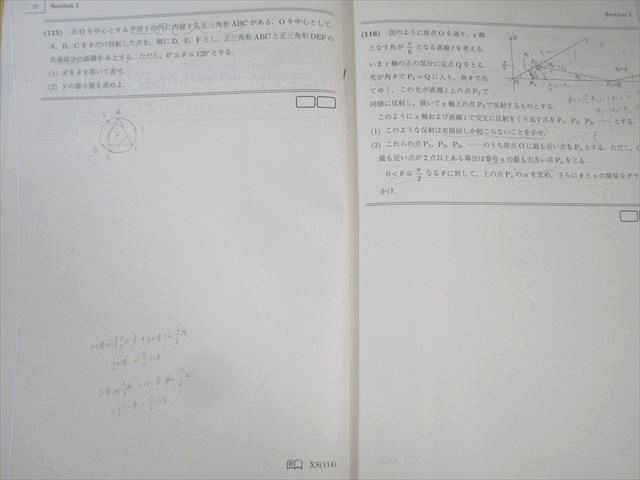 Section 3
(115) 点Oを中心とする半径1の円に内接する正三角形ABCがある。Oを中心として,
A, B, Cをθだけ回転した点を, 順にD, E, Fとし, 正三角形ABCと正三角形DEFの
共通部分の面積をSとする。ただし, 0°≦θ≦120°とする。
(1) Sをθを用いて表せ。
(2) Sの最小値を求めよ。
A
D
C
XS(114)
Section 3
(116) 図のように原点Oを通り, x軸
となす角がπ/6となる直線lを考える。
いまx軸の正の部分に定点Qをとる。
光が角θでP₁=Qに入り, 角θで出
てゆく。この光が直線l上の点P₂で
同様に反射し, 続いてx軸上の点P₃で反射するものとする。
このようにx軸および直線lで交互に反射をくり返す点をP₁, P₂, P₃, …… とする。
(1) このような反射は有限回しか起こらないことを示せ。
(2) これらの点P₁, P₂, P₃, …… のうち原点Oに最も近い点をPₙとする。ただし, O
最も近い点が2点以上ある場合は番号nの最も大きい点Pₙをとる。
0<θ≦π/2なるθに対して, 上の点Pₙのnを求め, さらにθとnの関係をグラ
かけ。